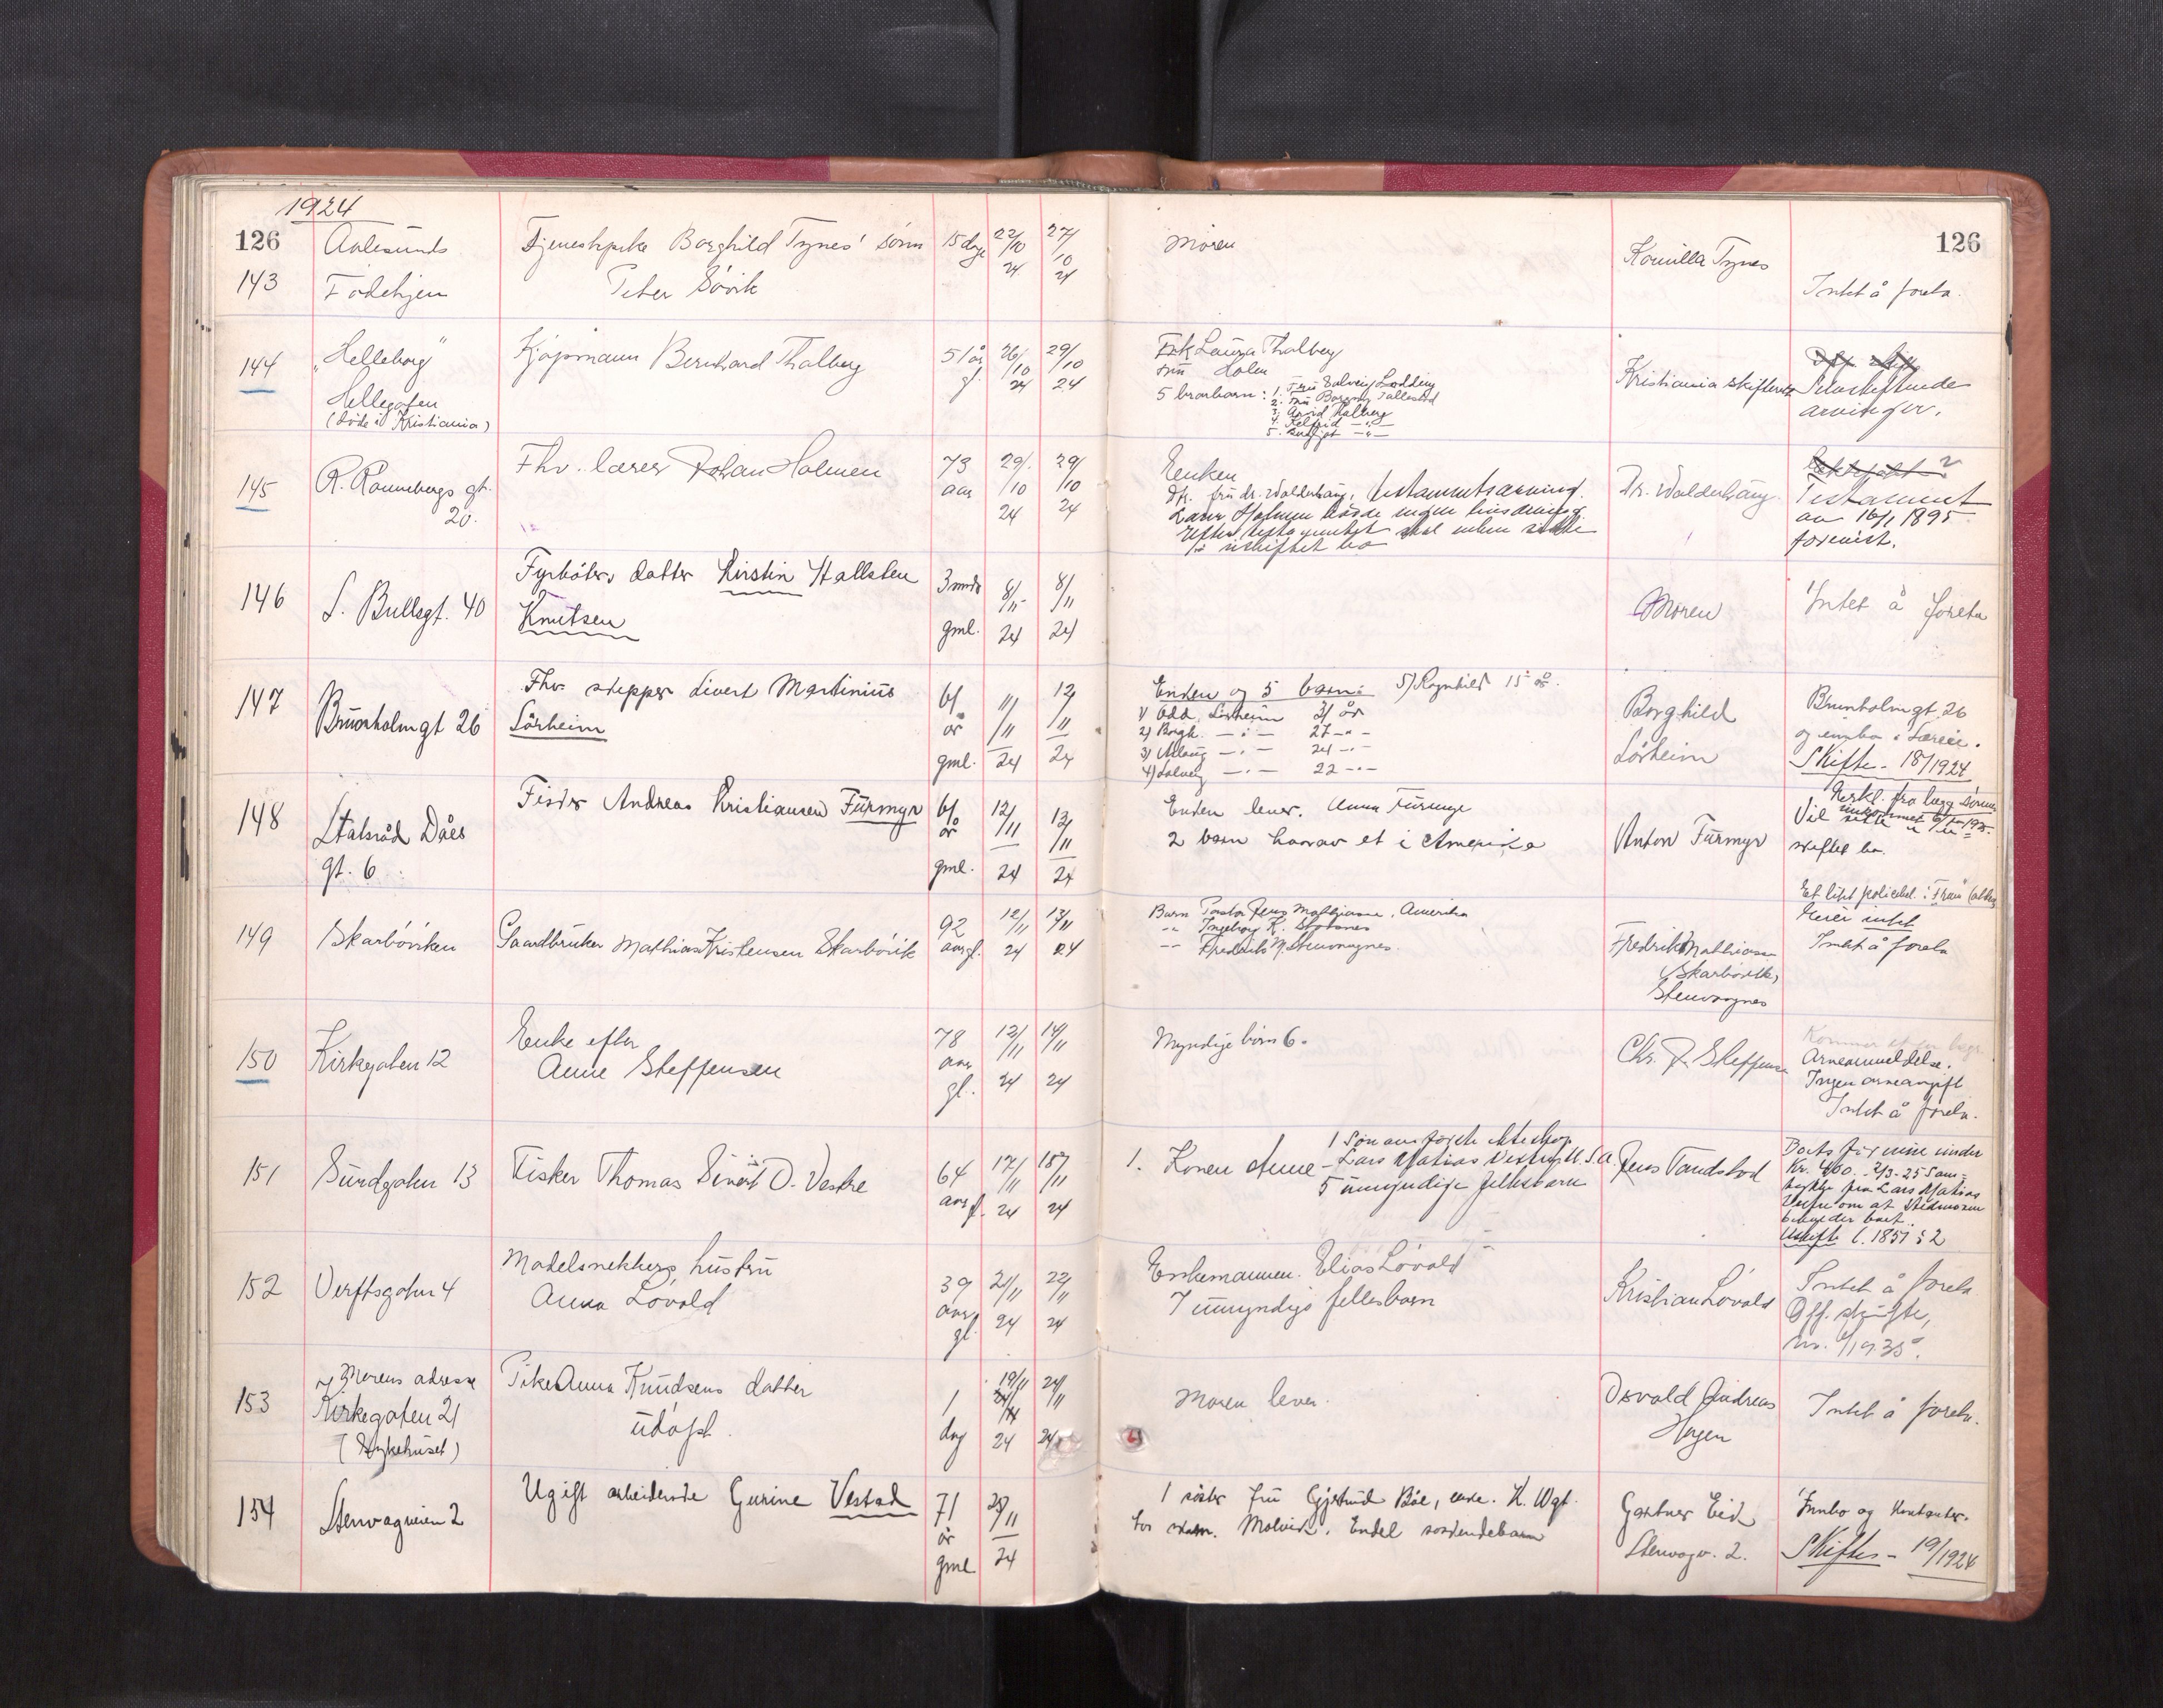 1924
126
143
Aalesunds
Födehjem
Tjenestepike Borghild Tynes' sönn
Peter Sövik
15 dage
22/10 24
27/10 24
Moren
Kamilla Tynes
126
Intet å foreta.
144
"Helleborg"
Hellegaten
(döde i Kristiania)
Kjöpmann Bernhard Thalberg
51 år
gl.
26/10 24
29/10 24
Frk Laura Thalberg
Fru Holm
5 brorbarn: 1. Fru Solveig Lodding
2. Fru Borgny
3. Arvid Thalberg
4. — " —
5. — " —
Kristiania skifterett
Selvskiftende
arvinger.
145
R. Rönnebergs gt.
20.
Fhv. lærer Johan Holmen
73
aar
29/10 24
29/10 24
Enken
Dtr. fru dr. Walderhaug, testamentsarving.
Lærer Holmen hadde ingen livsarving
Efter testamentet skal enken sitte
i uskiftet bo
Dr. Walderhaug
Testament
av 16/1 1895
forevist.
146
S. Bullsgt. 40
Fyrböters datter Kirstin Hallsten
Knutsen
3 mndr
gml.
8/11 24
8/11 24
Moren
Intet å foreta
147
Brunholmgt 26
Fhv. skipper Sivert Martinius
Lörheim
61
år
gml.
11/11 24
12/11 24
Enken og 5 barn: 5) Ragnhild 15 år.
1) Odd Lörheim 31 år
2) Borgh. — " — 27 — " —
3) Aslaug — " — 24 — " —
4) Solveig — " — 22 — " —
Borghild
Lörheim
Brunholmgt. 26
og innbo i Læreie.
Skifte - 18/1924
148
Stålsråd Dåes
gt. 6
Fisker Andreas Kristiansen Furmyr
61
år
gml.
12/11 24
13/11 24
Enken lever. Anna Furmyr
2 barn hvorav et i Amerika
Anton Furmyr
Vil sitte i u-
skiftet bo.
149
Skarböviken
Gaardbruker Mathias Kristensen Skarbövik
92
aar gl.
12/11 24
13/11 24
Barn Pastor Jens Mathiasen, Amerika
-"- Ingeborg K.
-"- Fredrik M. Stenvaagnes
Fredrik Mathiasen
Skarbövik,
Stenvaagnes
Eier intet
Intet å foreta
150
Kirkegaten 12
Enke efter
Anne Steffensen
78
aar
gl.
12/11 24
14/11 24
Myndige börn 6.
Chr. J. Steffensen
Kommer efter begr.
Arveanmeldelse.
Ingen arveavgift
Intet å foreta.
151
Sundgaten 13
Fisker Thomas Sivert O. Vestre
64
aar gl.
17/11 24
18/11 24
1 sön av förste ekteskap
1. Konen Anne - Lars Matias Vestre U.S.A.
5 umyndige fellesbarn
Jens Tandstad
Boets formue under
Kr. 400.- 2/3-25 Sam-
tykke fra Lars Matias
Vestre om at Stedmoren
beholder boet.
Uskifte l. 1851 § 2
152
Verftsgaten 4
Modelsnekkers hustru
Anna Lövold
39
aar
gl.
21/11 24
22/11 24
Enkemannen. Elias Lövold
7 umyndige fellesbarn
Kristian Lövold
Intet å foreta
Off. skifte,
no. 1/1935.
153
Morens adresse
Kirkegaten 21
(Sykehuset)
Pike Anna Knudsens datter
udöpt.
1
dag
19/11 24
24/11 24
Moren lever.
Osvald Andreas
Hagen
Intet å foreta.
154
Stenvagveien 2
Ugift arbeiderske Gurine Vestad
71
år
gml
23/11 24
1 söster fru Gjertrud Böe, enke. K. Wgt.
bor sam. Molvik. Endel söskendebarn
Gartner Eid
Stenvagv. 2.
Innbo og kontanter.
Skiftes - 19/1924